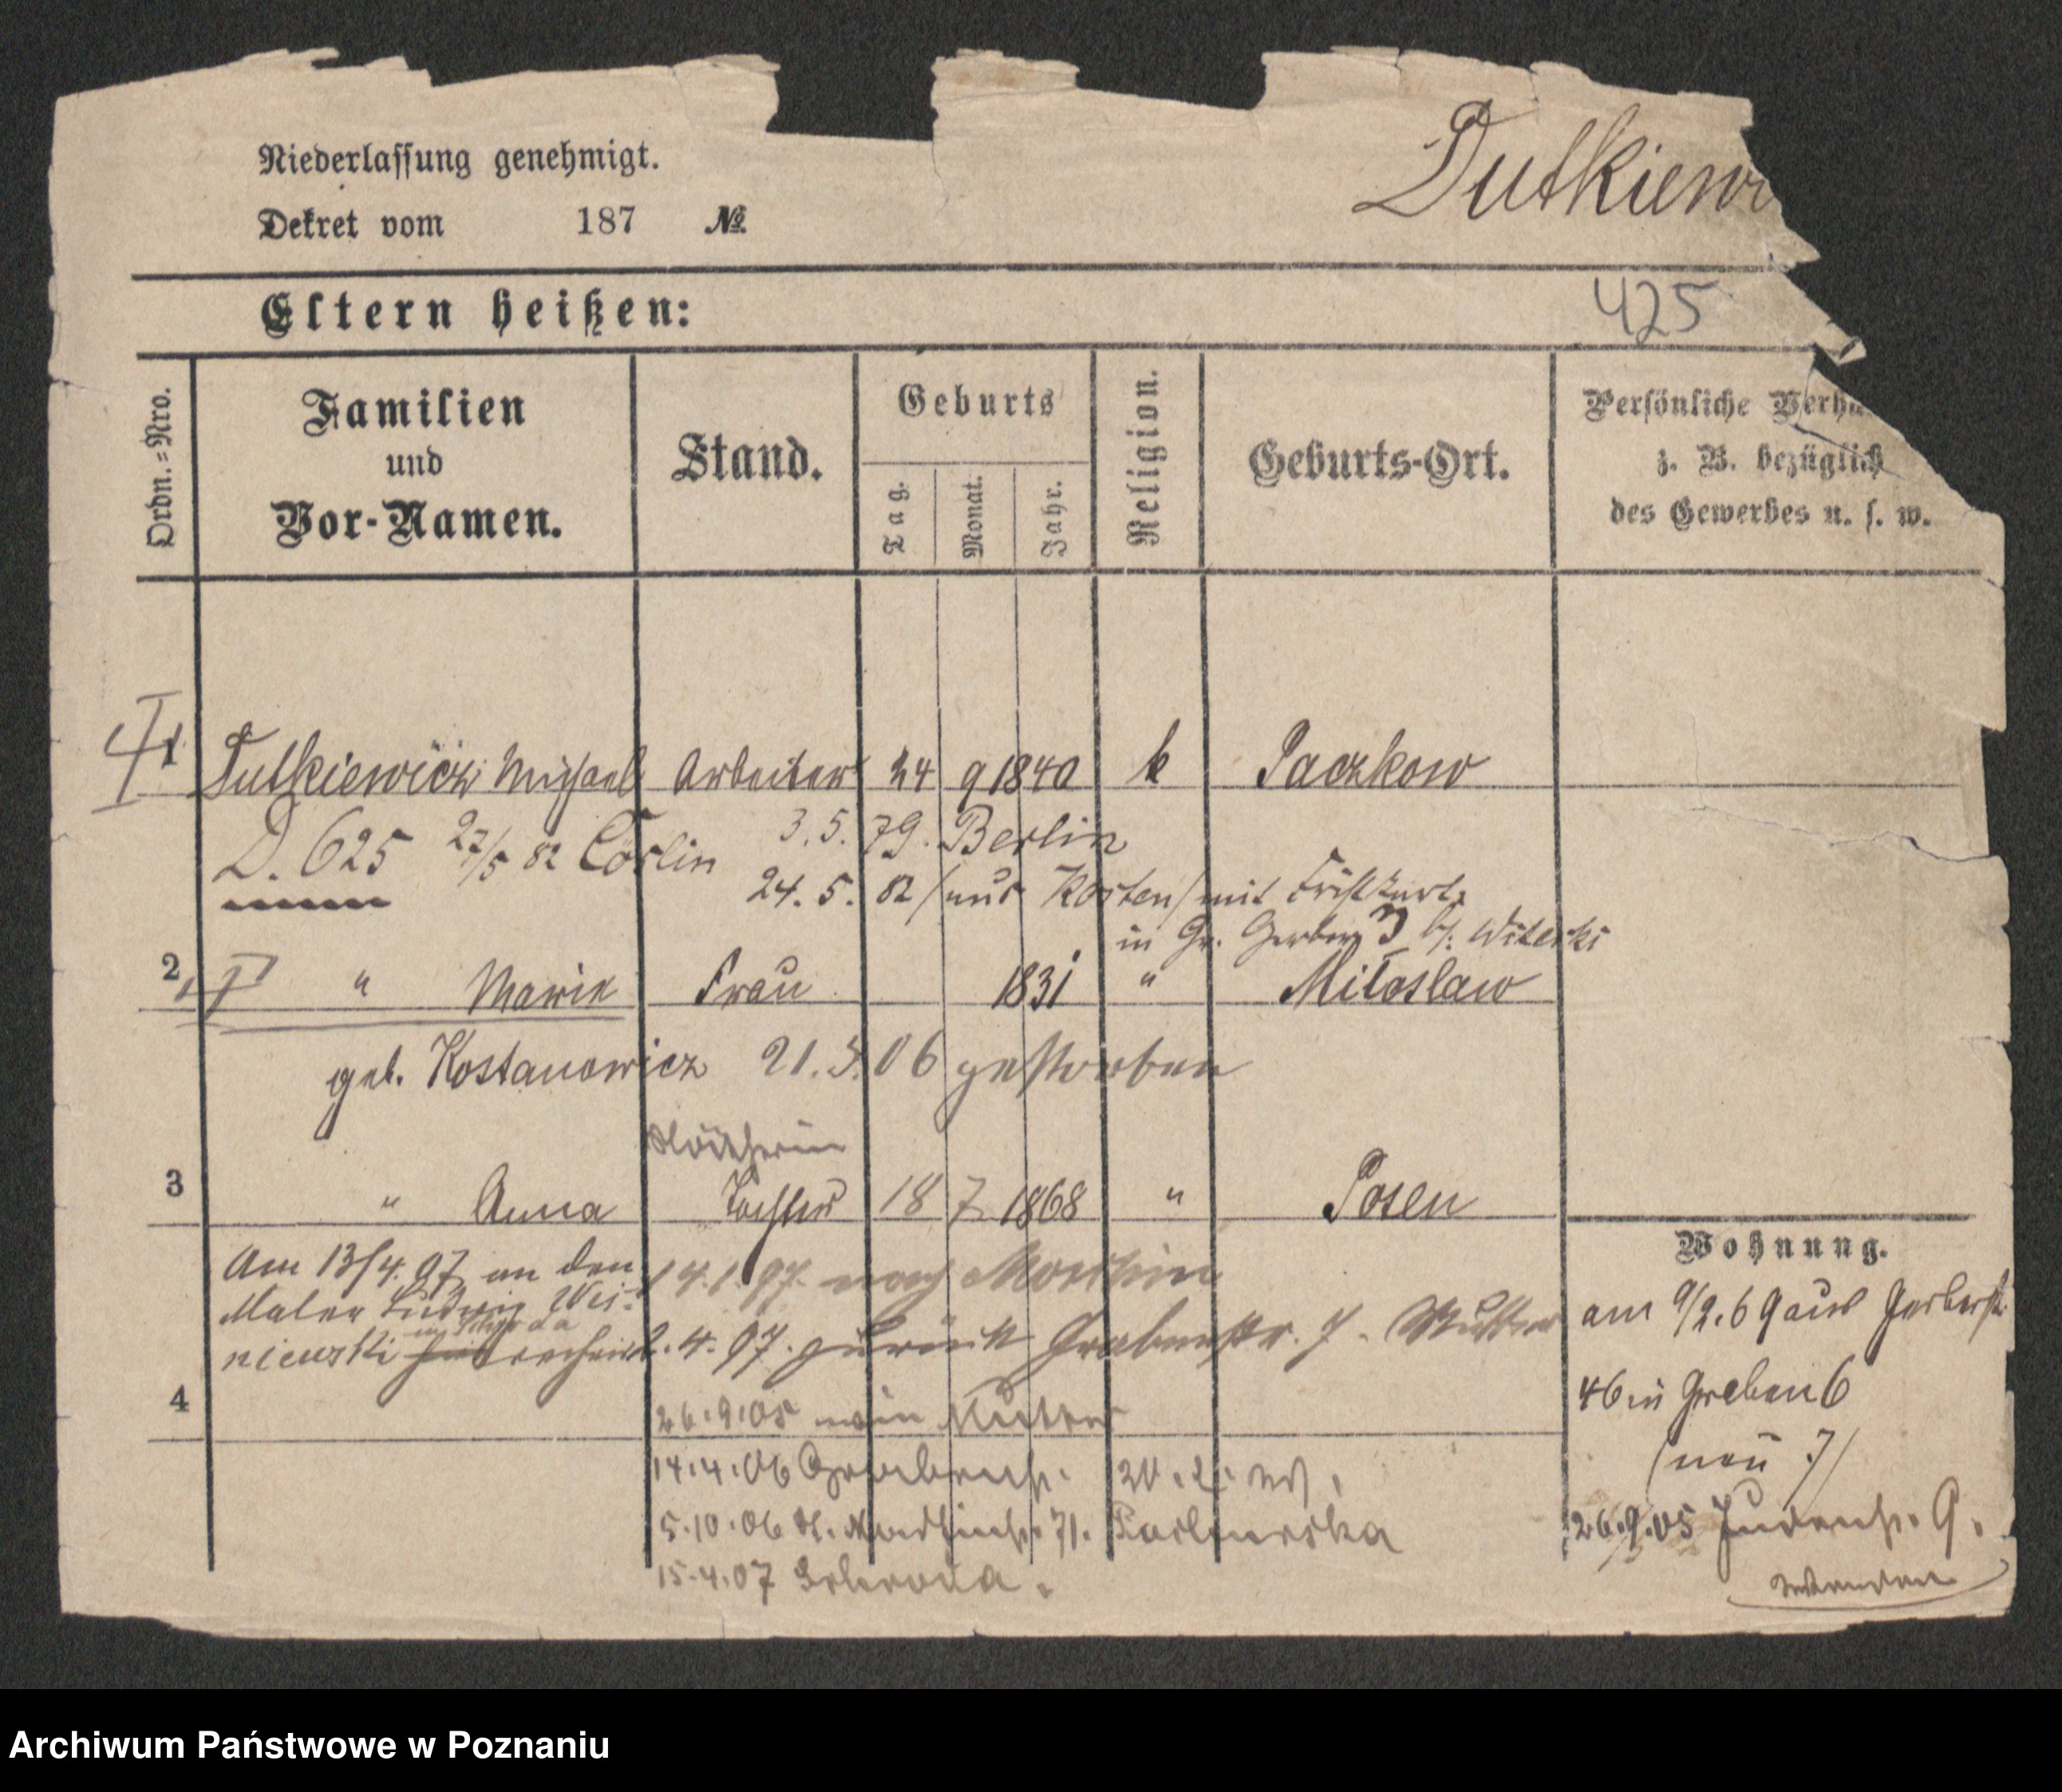 Niederlassung genehmigt.
Dekret vom 187 №.
Dutkiewi
Eltern heißen:
425
Ordn.=Nro.
Familien
und
Vor-Namen.
Stand.
Geburts
Tag.
Monat.
Jahr.
Religion.
Geburts-Ort.
Persönliche Verhä
z. B. bezüglich
des Gewerbes u. s. w.
1 Dutkiewicz Michael Arbeiter 24 9 1840 k Paczkow
D. 625 27/5 82 Cöslin
3. 5. 79. Berlin
24. 5. 82 / aus Kosten / mit
in Gr. Gerber 3 b/. Witecki
2 " Marie Frau 1831 " Miloslaw
geb. Kostanowicz 21. 3. 06 gestorben
3 " Anna Tochter 18 7 1868 " Posen
Am 13/4. 97 an den
Maler Ludwig Wis-
niewski
14.1.97. nach
4. 97. zurück Grabenstr. 7. Mutter
4
26.9.05 Mutter
14.4.06 Grabenstr. 20.
5.10.06 71.
15.4.07 Schroda.
Wohnung.
am 9/2. 69 aus Gerberstr.
46 in Graben 6
(neu 7)
26.9.05 Judenstr. 9.
wenden
Archiwum Państwowe w Poznaniu